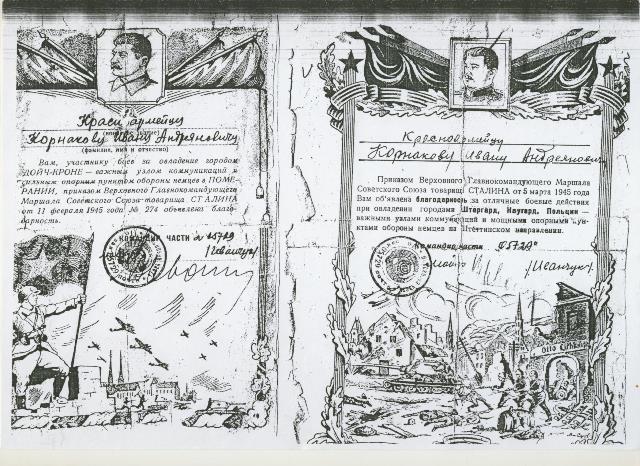 Красноармейцу
Корнакову Ивану Андреяновичу
(фамилия, имя и отчество)
Вам, участнику боев за овладение городом
ДОЙЧ-КРОНЕ — важным узлом коммуникаций и
сильным опорным пунктом обороны немцев в ПОМЕ-
РАНИИ, приказом Верховного Главнокомандующего
Маршала Советского Союза товарища СТАЛИНА
от 11 февраля 1945 года № 274 объявлена благо-
дарность.
КОМАНДИР ЧАСТИ
Красноармейцу
Корнакову Ивану Андреяновичу
Приказом Верховного Главнокомандующего Маршала
Советского Союза товарища СТАЛИНА от 5 марта 1945 года
Вам объявлена благодарность за отличные боевые действия
при овладении городами Штаргард, Наугард, Польцин —
важными узлами коммуникаций и мощными опорными пун-
ктами обороны немцев на Штеттинском направлении.
Командир части